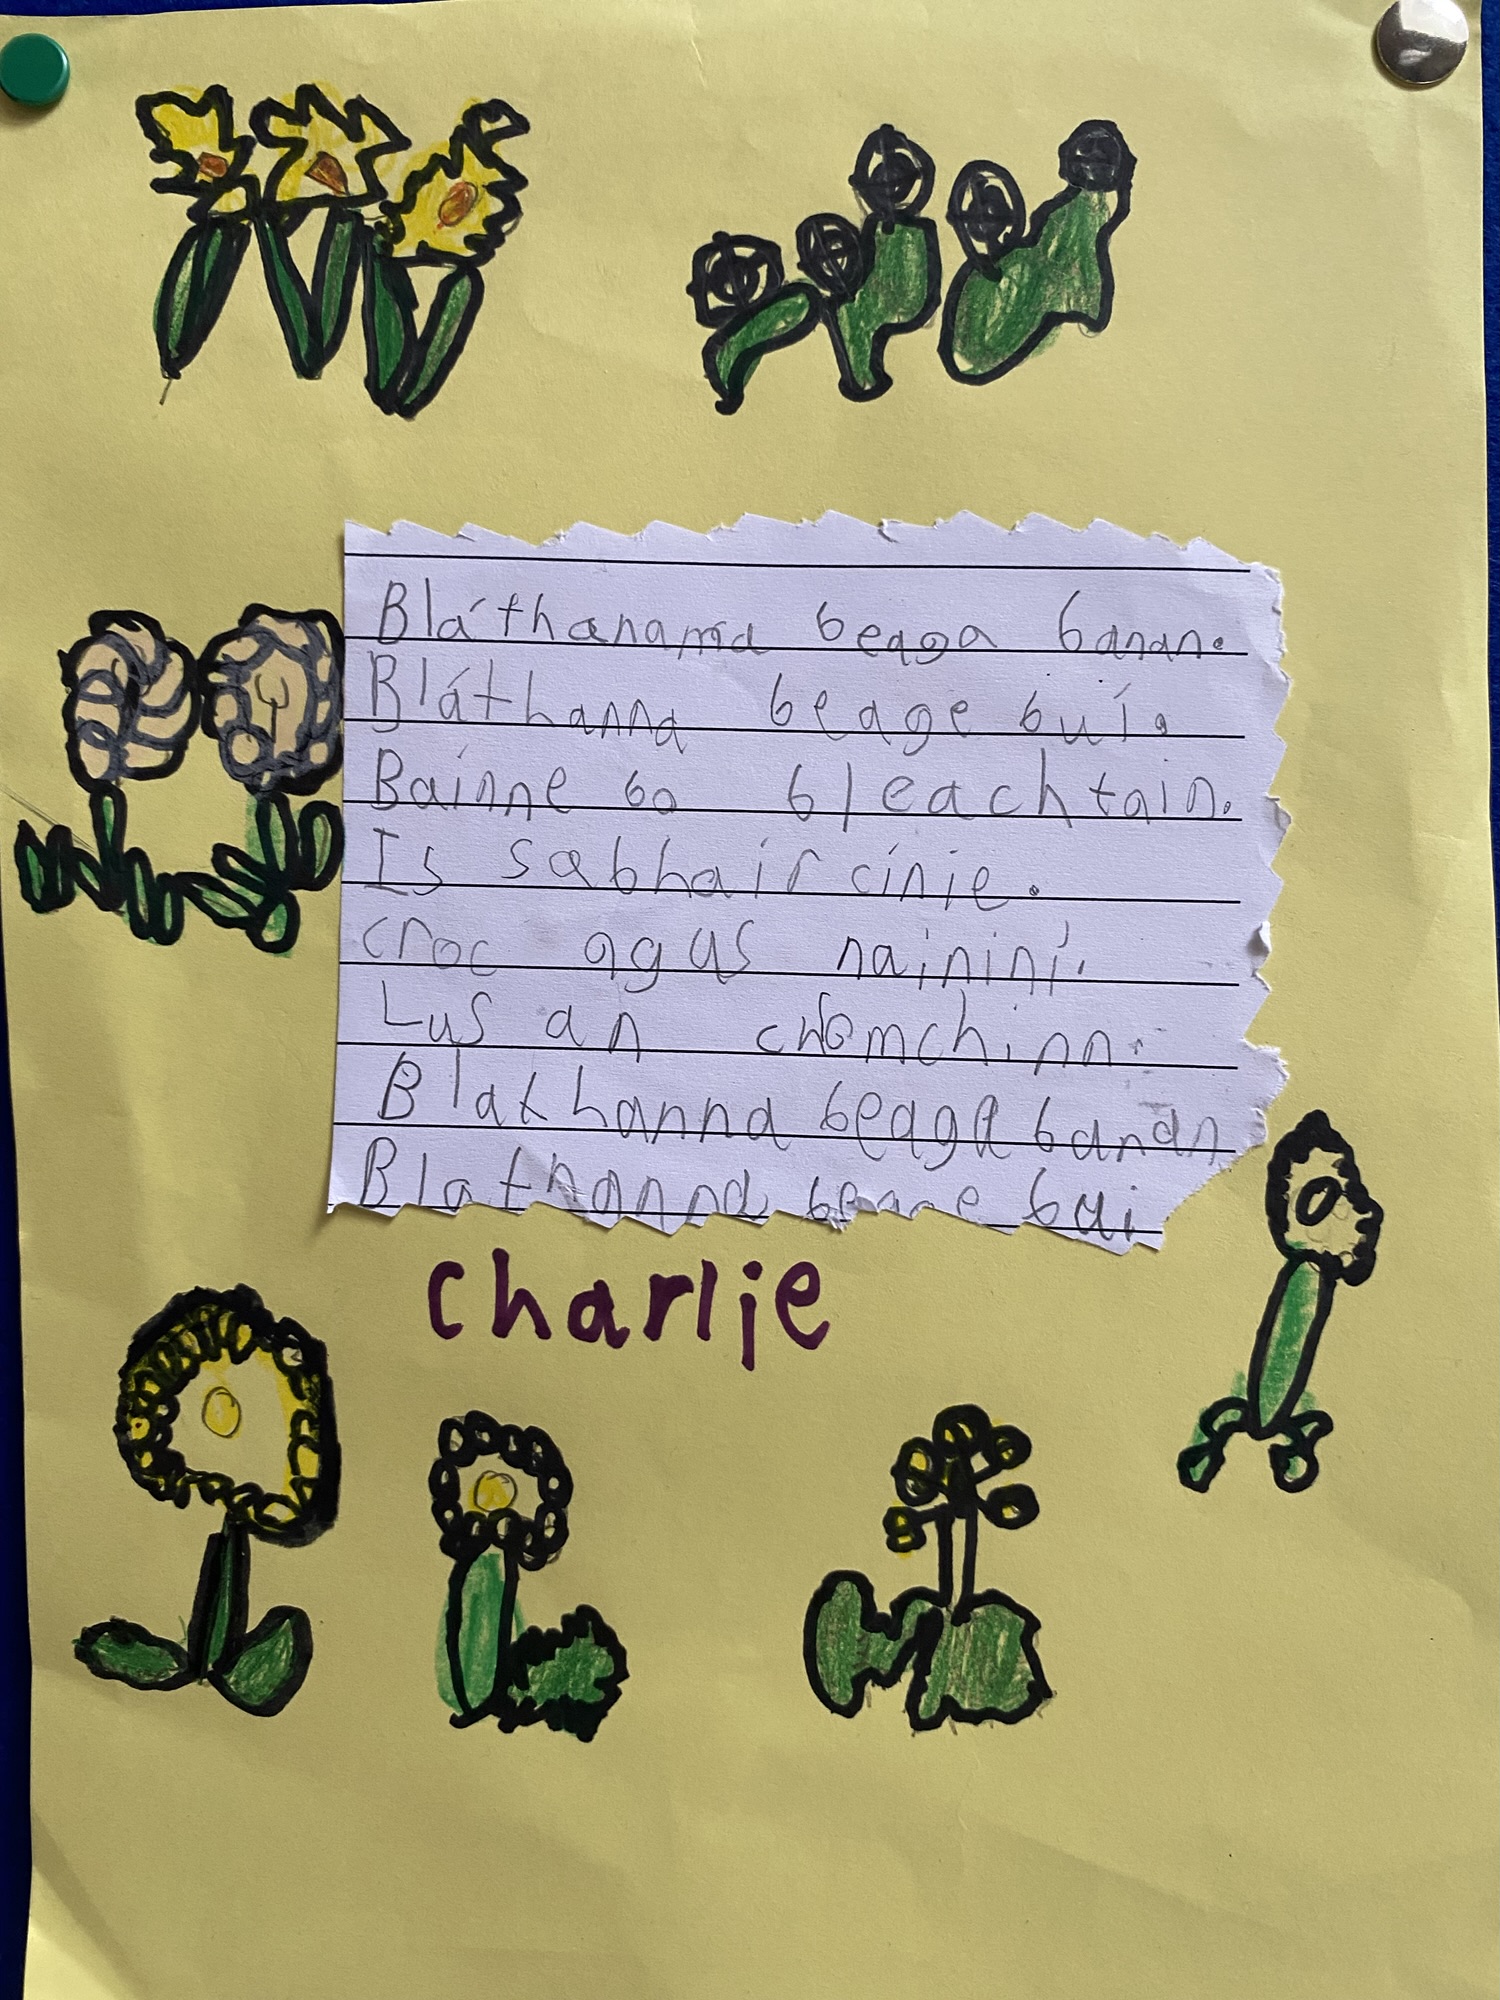 Bláthanama beaga banan.
Bláthanna beage buí.
Bainne bo bleachtain.
Is sabhaircínie.
croc agus naininí.
Lus an chromchinn.
Blathanna beaga banan
Blathanna beage bui
charlie